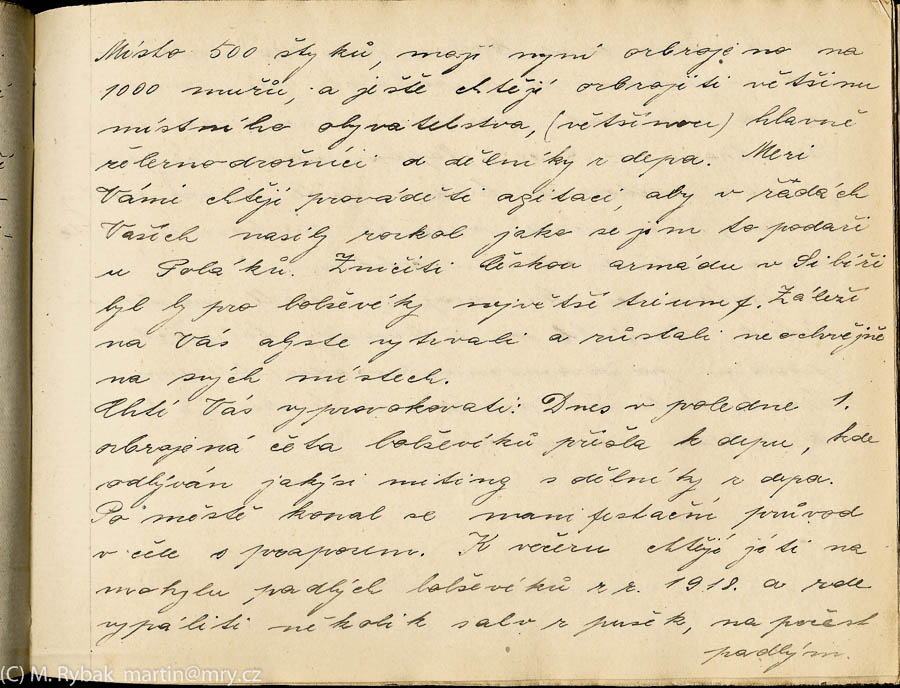 Místo 500 štyků, mají nyní ozbrojeno na
1000 mužů, a ještě chtějí ozbrojiti většinu
místního obyvatelstva, (většinou) hlavně
železnodorožníci a dělníky z depa. Mezi
Vámi chtějí prováděti agitaci, aby v řadách
Vašich nasily rozkol jako se jim to podaři
u Poláků. Zničiti českou armádu v Sibíři
byl by pro bolševíky největší triumf. Záleží
na Vás abyste vytrvali a zůstali neochvějně
na svých místech.
Chtí Vás vyprovokovati: Dnes v poledne 1.
ozbrojená četa bolševíků přišla k depu, kde
odbýván jakýsi miting s dělníky z depa.
Po městě konal se manifestační průvod
v čele s praporem. K večeru chtějí jíti na
mohylu padlých bolševíků z r. 1918. a zde
vypáliti několik salv z pušek, na počest
padlým.
(C) M. Rybak martin@mry.cz